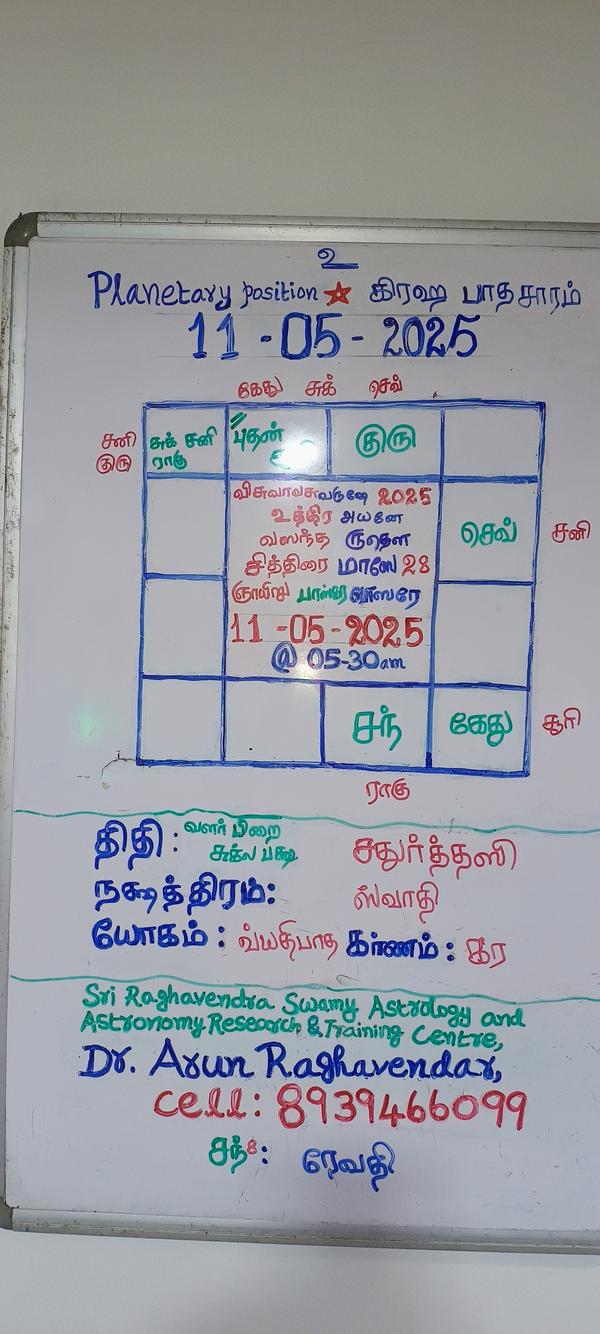 உ
Planetary position ☆ கிரஹ பாதசாரம்
11-05-2025
கேது சுக் செவ்
சனி
குரு
சுக் சனி
ராகு
புதன்
குரு
செவ்
சனி
விசுவாவசுவருஷே 2025
உத்திர அயனே
வஸந்த ருதௌ
சித்திரை மாஸே 28
ஞாயிறு பாஸ்கர வாஸரே
11-05-2025
@ 05-30am
சந்
கேது
சூரி
ராகு
திதி : வளர் பிறை
சுக்ல பக்ஷ
சதுர்த்தஸி
நக்ஷத்திரம்: ஸ்வாதி
யோகம் : வ்யதிபாத கர்ணம் : கர
Sri Raghavendra Swamy Astrology and
Astronomy Research & Training Centre,
Dr. Arun Raghavendar,
cell: 8939466099
சந்8: ரேவதி